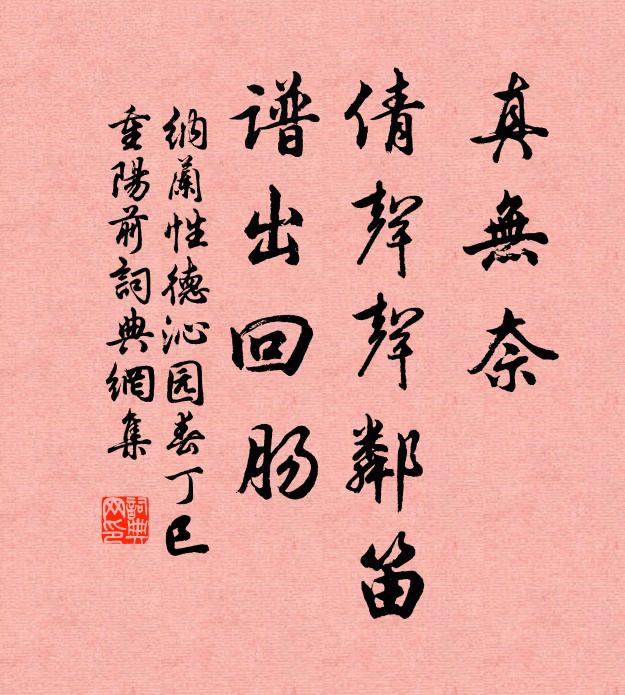 真無奈
倩聲聲鄰笛
谱出回肠
纳蘭性德沁园春丁巳
重陽前詞典網集
詞典
网印